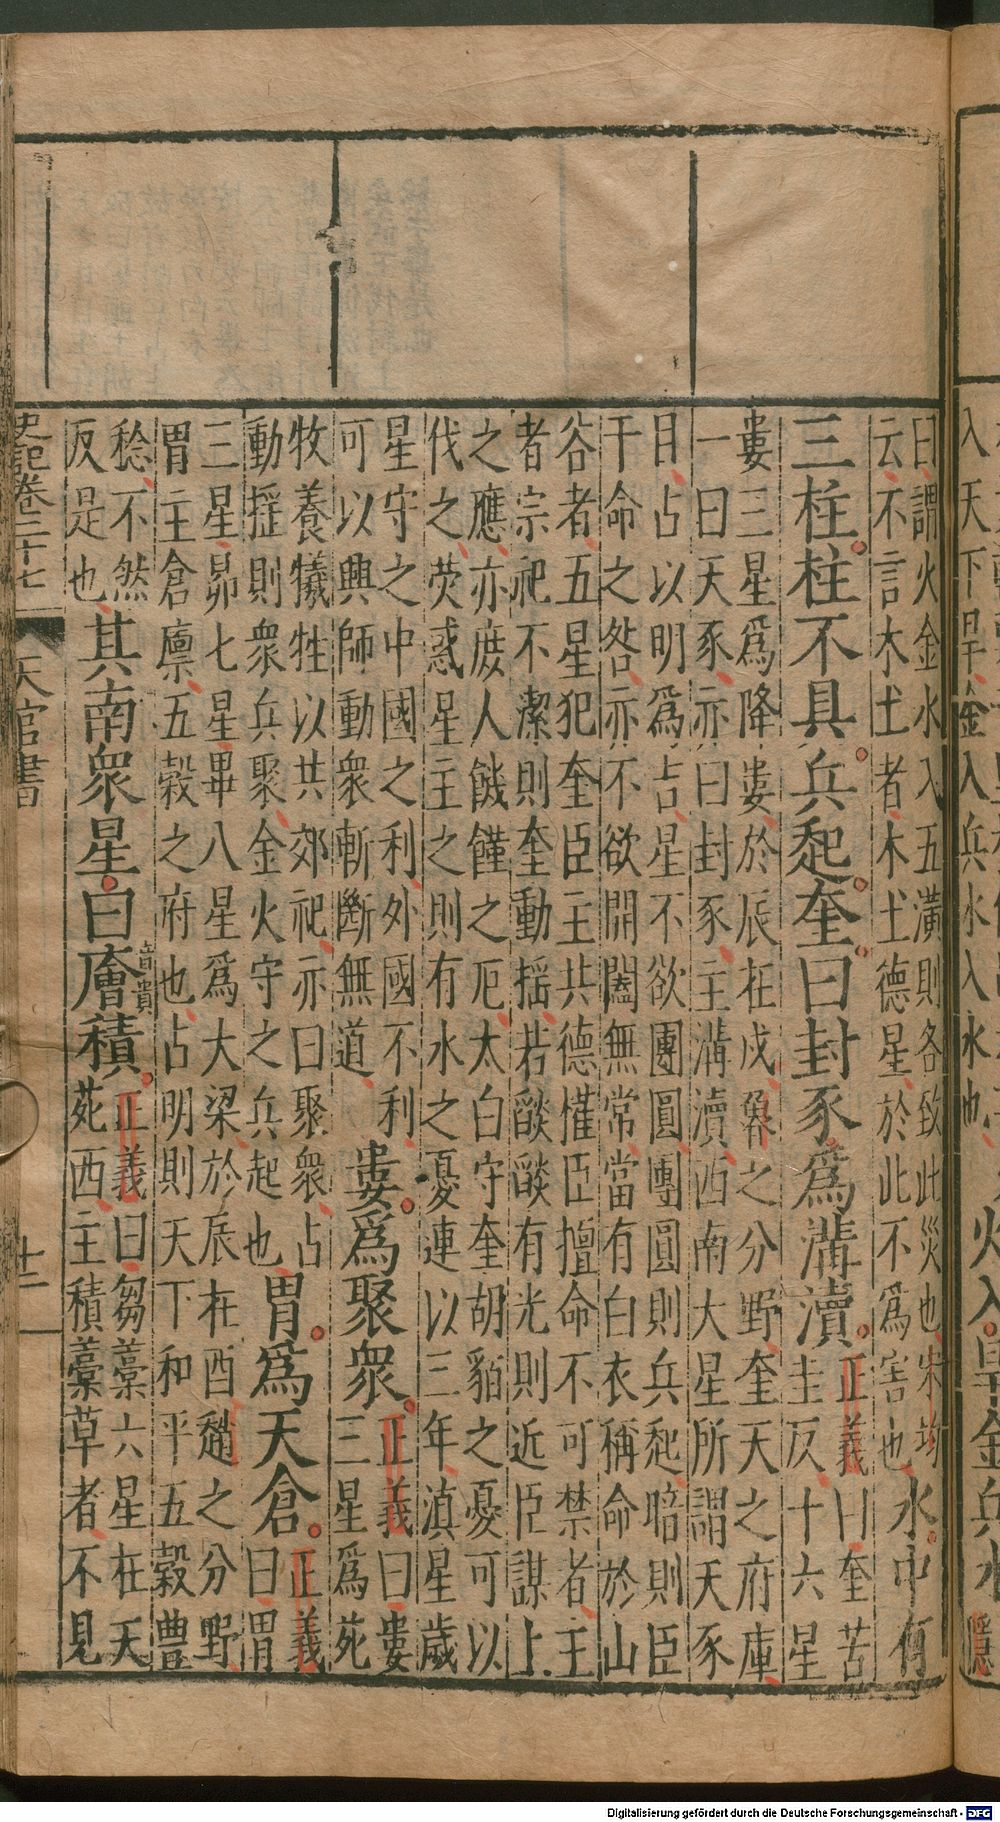 入天下旱金入兵水入水也
火入旱金兵水
曰謂火金水入五潢則各致此災也宋均
云不言木土者木土德星於此不爲害也
水中有
三柱柱不具兵起奎曰封豕爲溝瀆
正義曰奎苦
圭反十六星
婁三星爲降婁於辰在戌魯之分野奎天之府庫
一曰天豕亦曰封豕主溝瀆西南大星所謂天豕
目占以明爲吉星不欲團圓團圓則兵起暗則臣
干命之咎亦不欲開闔無常當有白衣稱命於山
谷者五星犯奎臣主共德權臣擅命不可禁者主
者宗祀不潔則奎動揺若燄燄有光則近臣謀上
之應亦庻人饑饉之厄太白守奎胡貊之憂可以
伐之熒惑星主之則有水之憂連以三年滇星歲
星守之中國之利外國不利
可以興師動衆斬斷無道
婁爲聚衆
正義曰婁
三星爲苑
牧養犧牲以共郊祀亦曰聚衆占
動揺則衆兵聚金火守之兵起也
胃爲天倉
正義
曰胃
三星昴七星畢八星爲大梁於辰在酉趙之分野
胃主倉廪五穀之府也占明則天下和平五穀豐
稔不然
反是也
其南衆星曰廥積
音貴
正義曰芻藁六星在天
苑西主積藁草者不見
史記卷二十七 天官書 十二
Digitalisierung gefördert durch die Deutsche Forschungsgemeinschaft - DFG